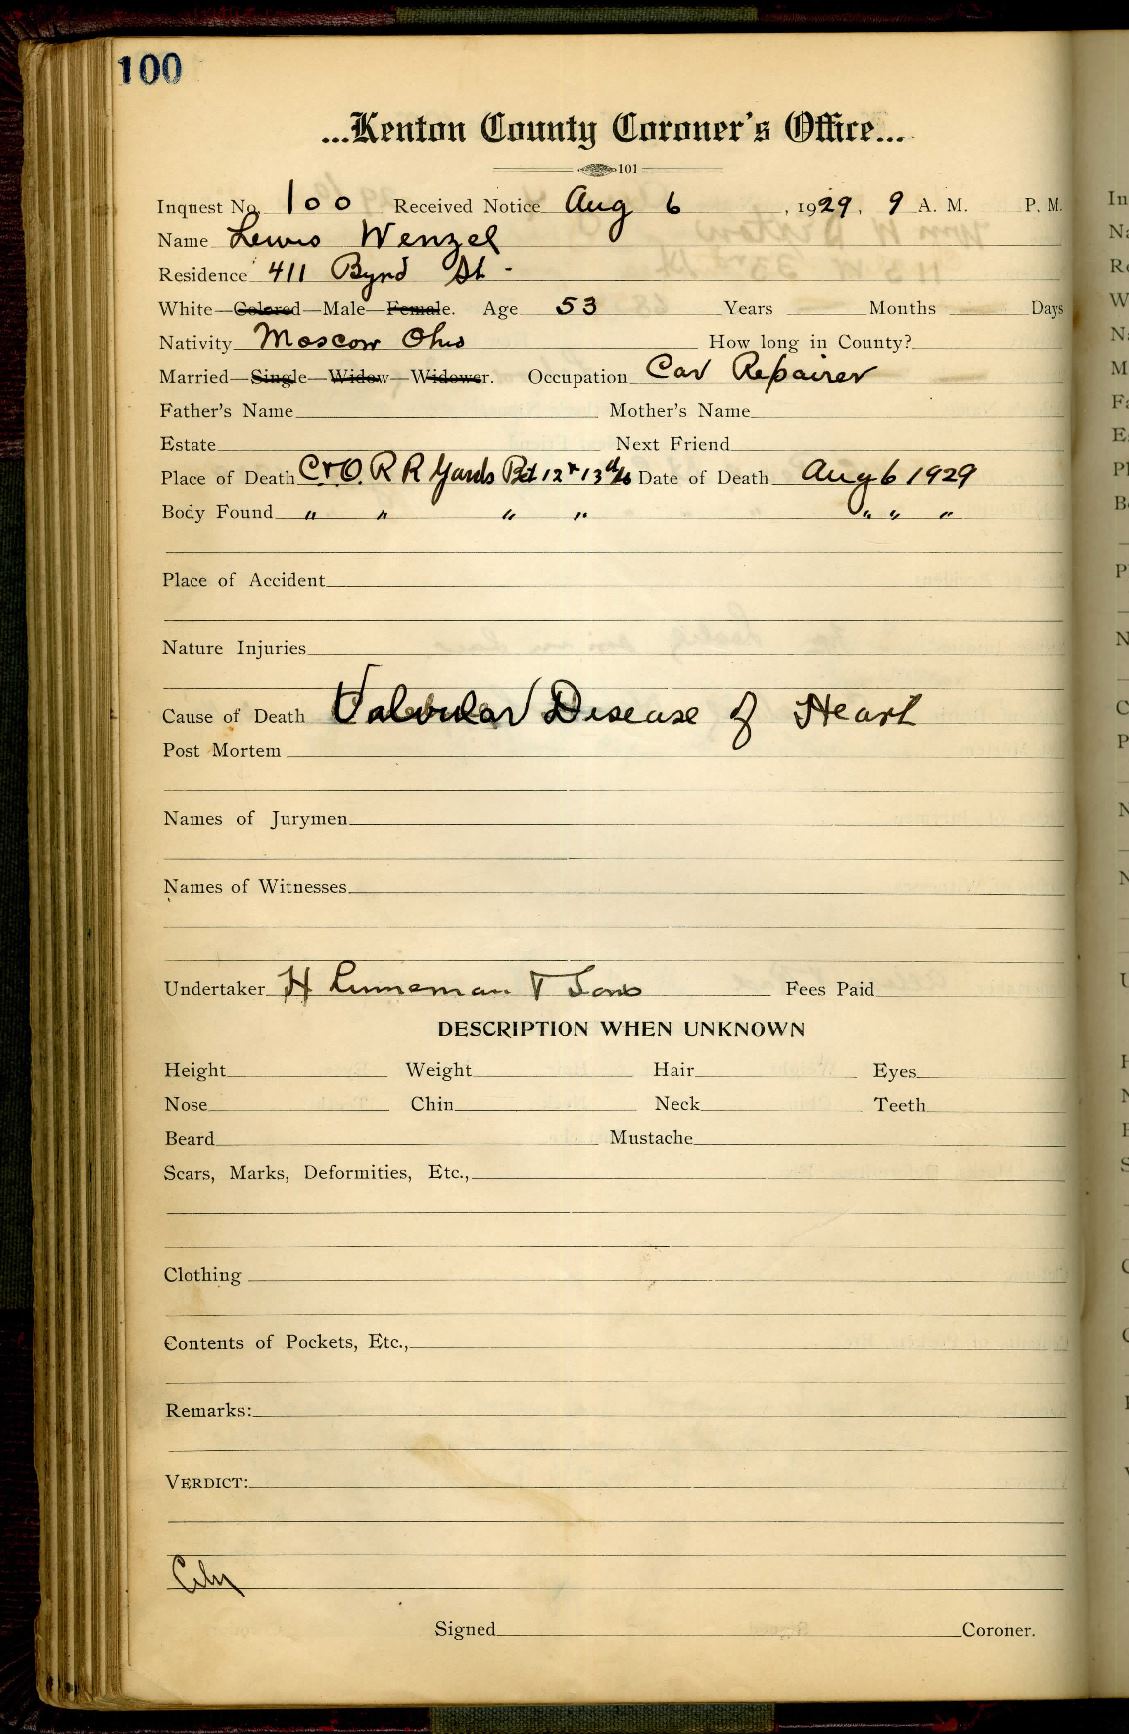 100
...Kenton County Coroner's Office...
101
Inquest No. 100 Received Notice Aug 6, 1929, 9 A. M. P. M.
Name Lewis Wenzel
Residence 411 Byrd St.
White—Colored—Male—Female. Age 53 Years Months Days
Nativity Moscow Ohio How long in County?
Married—Single—Widow—Widower. Occupation Car Repairer
Father's Name Mother's Name
Estate Next Friend
Place of Death C & O. R R Yards Bet 12 & 13 Date of Death Aug 6 1929
Body Found " " " " " " "
Place of Accident
Nature Injuries
Cause of Death Valvular Disease of Heart
Post Mortem
Names of Jurymen
Names of Witnesses
Undertaker H Linneman & Sons Fees Paid
DESCRIPTION WHEN UNKNOWN
Height Weight Hair Eyes
Nose Chin Neck Teeth
Beard Mustache
Scars, Marks, Deformities, Etc.,
Clothing
Contents of Pockets, Etc.,
Remarks:
VERDICT:
City
Signed Coroner.